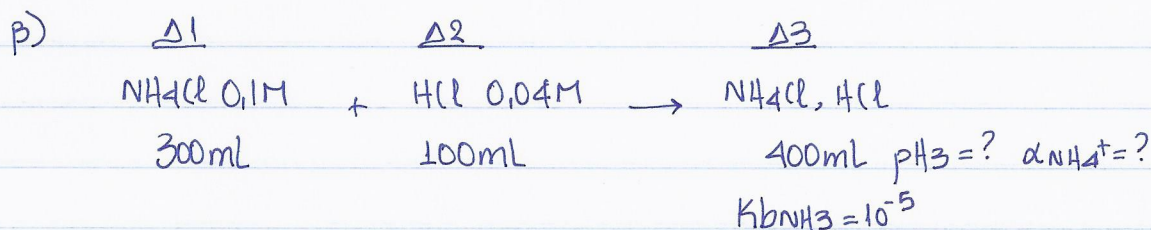 β) Δ1 Δ2 Δ3
NH4Cl 0,1M + HCl 0,04M → NH4Cl, HCl
300mL 100mL 400mL pH3=? αNH4+=?
KbNH3=10-5